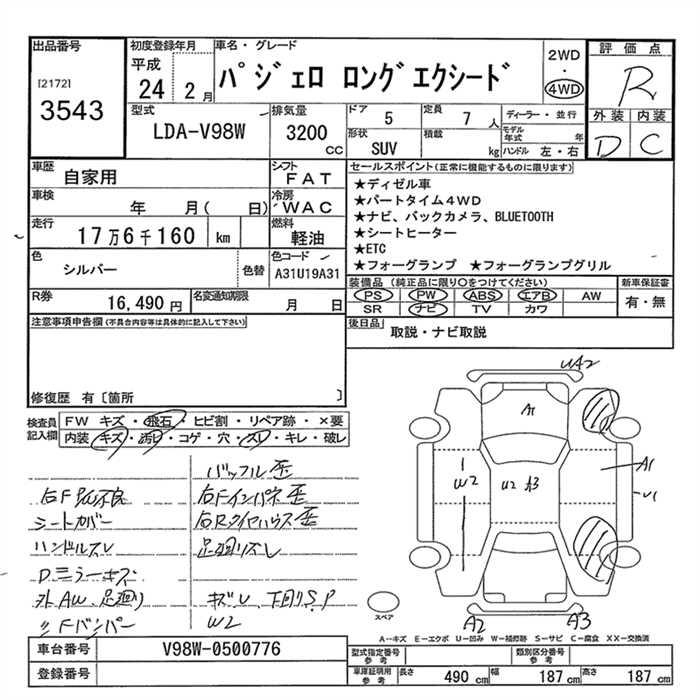 出品番号
[2172]
3543
初度登録年月
平成
24 2月
車名・グレード
パジェロ ロングエクシード
2WD
・
4WD
評価点
R
外装 内装
D C
型式
LDA-V98W
排気量
3200 CC
ドア
5
定員
7 人
形状
SUV
積載
kg
ディーラー・並行
モデル年式 年
ハンドル 左・右
車歴
自家用
シフト
FAT
車検
年 月( 日)
冷房
WAC
走行
17万6千160 km
燃料
軽油
色
シルバー
色替
色コード
A31U19A31
R券
16,490円
名変通知期限
月 日
セールスポイント(正常に機能するものに限ります)
★ディゼル車
★パートタイム4WD
★ナビ、バックカメラ、BLUETOOTH
★シートヒーター
★ETC
★フォーグランプ ★フォーグランプグリル
装備品 (純正品に限り○をつけてください)
PS PW ABS エアB AW
SR ナビ TV カワ
新車保証書
有・無
後日品
取説・ナビ取説
注意事項申告欄(不具合内容等は具体的に記入して下さい)
修復歴 有〔箇所 〕
検査員記入欄
FW キズ・飛石・ヒビ割・リペア跡・×要
内装・キズ・汚レ・コゲ・穴・スレ・キレ・破レ
バックル歪
右Fインパネ歪
シートカバー
右Rタイヤハウス歪
ハンドルスレ
足廻リズレ
Dミラーキズ
外AW、足廻り
キズU、下廻りS.P
〃Fバンパー
W2
UA2
A1
A1
U1
W2
U2 A3
A2
A3
スペア
A−キズ E−エクボ U−凹み W−補修跡 S−サビ C−腐食 XX−交換済
車台番号
V98W-0500776
登録番号
型式指定番号
参考
類別区分番号
参考
車庫証明用
参考
長さ 490 cm 幅 187 cm 高さ 187 cm